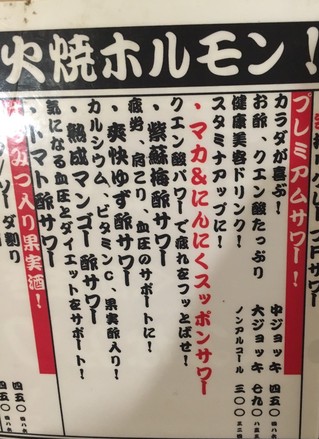 火焼ホルモン！
プレミアムサワー！
カラダが喜ぶ！
お酢、クエン酸たっぷり
健康美容ドリンク！
スタミナアップに！
中ジョッキ 四五〇
大ジョッキ 七九〇
ノンアルコール 三〇〇
・マカ&にんにくスッポンサワー
クエン酸パワーで疲れをフッとばせ！
・紫蘇梅酢サワー
疲労、肩こり、血圧のサポートに！
・爽快ゆず酢サワー
カルシウム、ビタミンC、果実酢入り！
・熟成マンゴー酢サワー
気になる血圧とダイエットをサポート！
・トマト酢サワー
みつ入り果実酒！
ソーダ割り
四五〇
四五〇